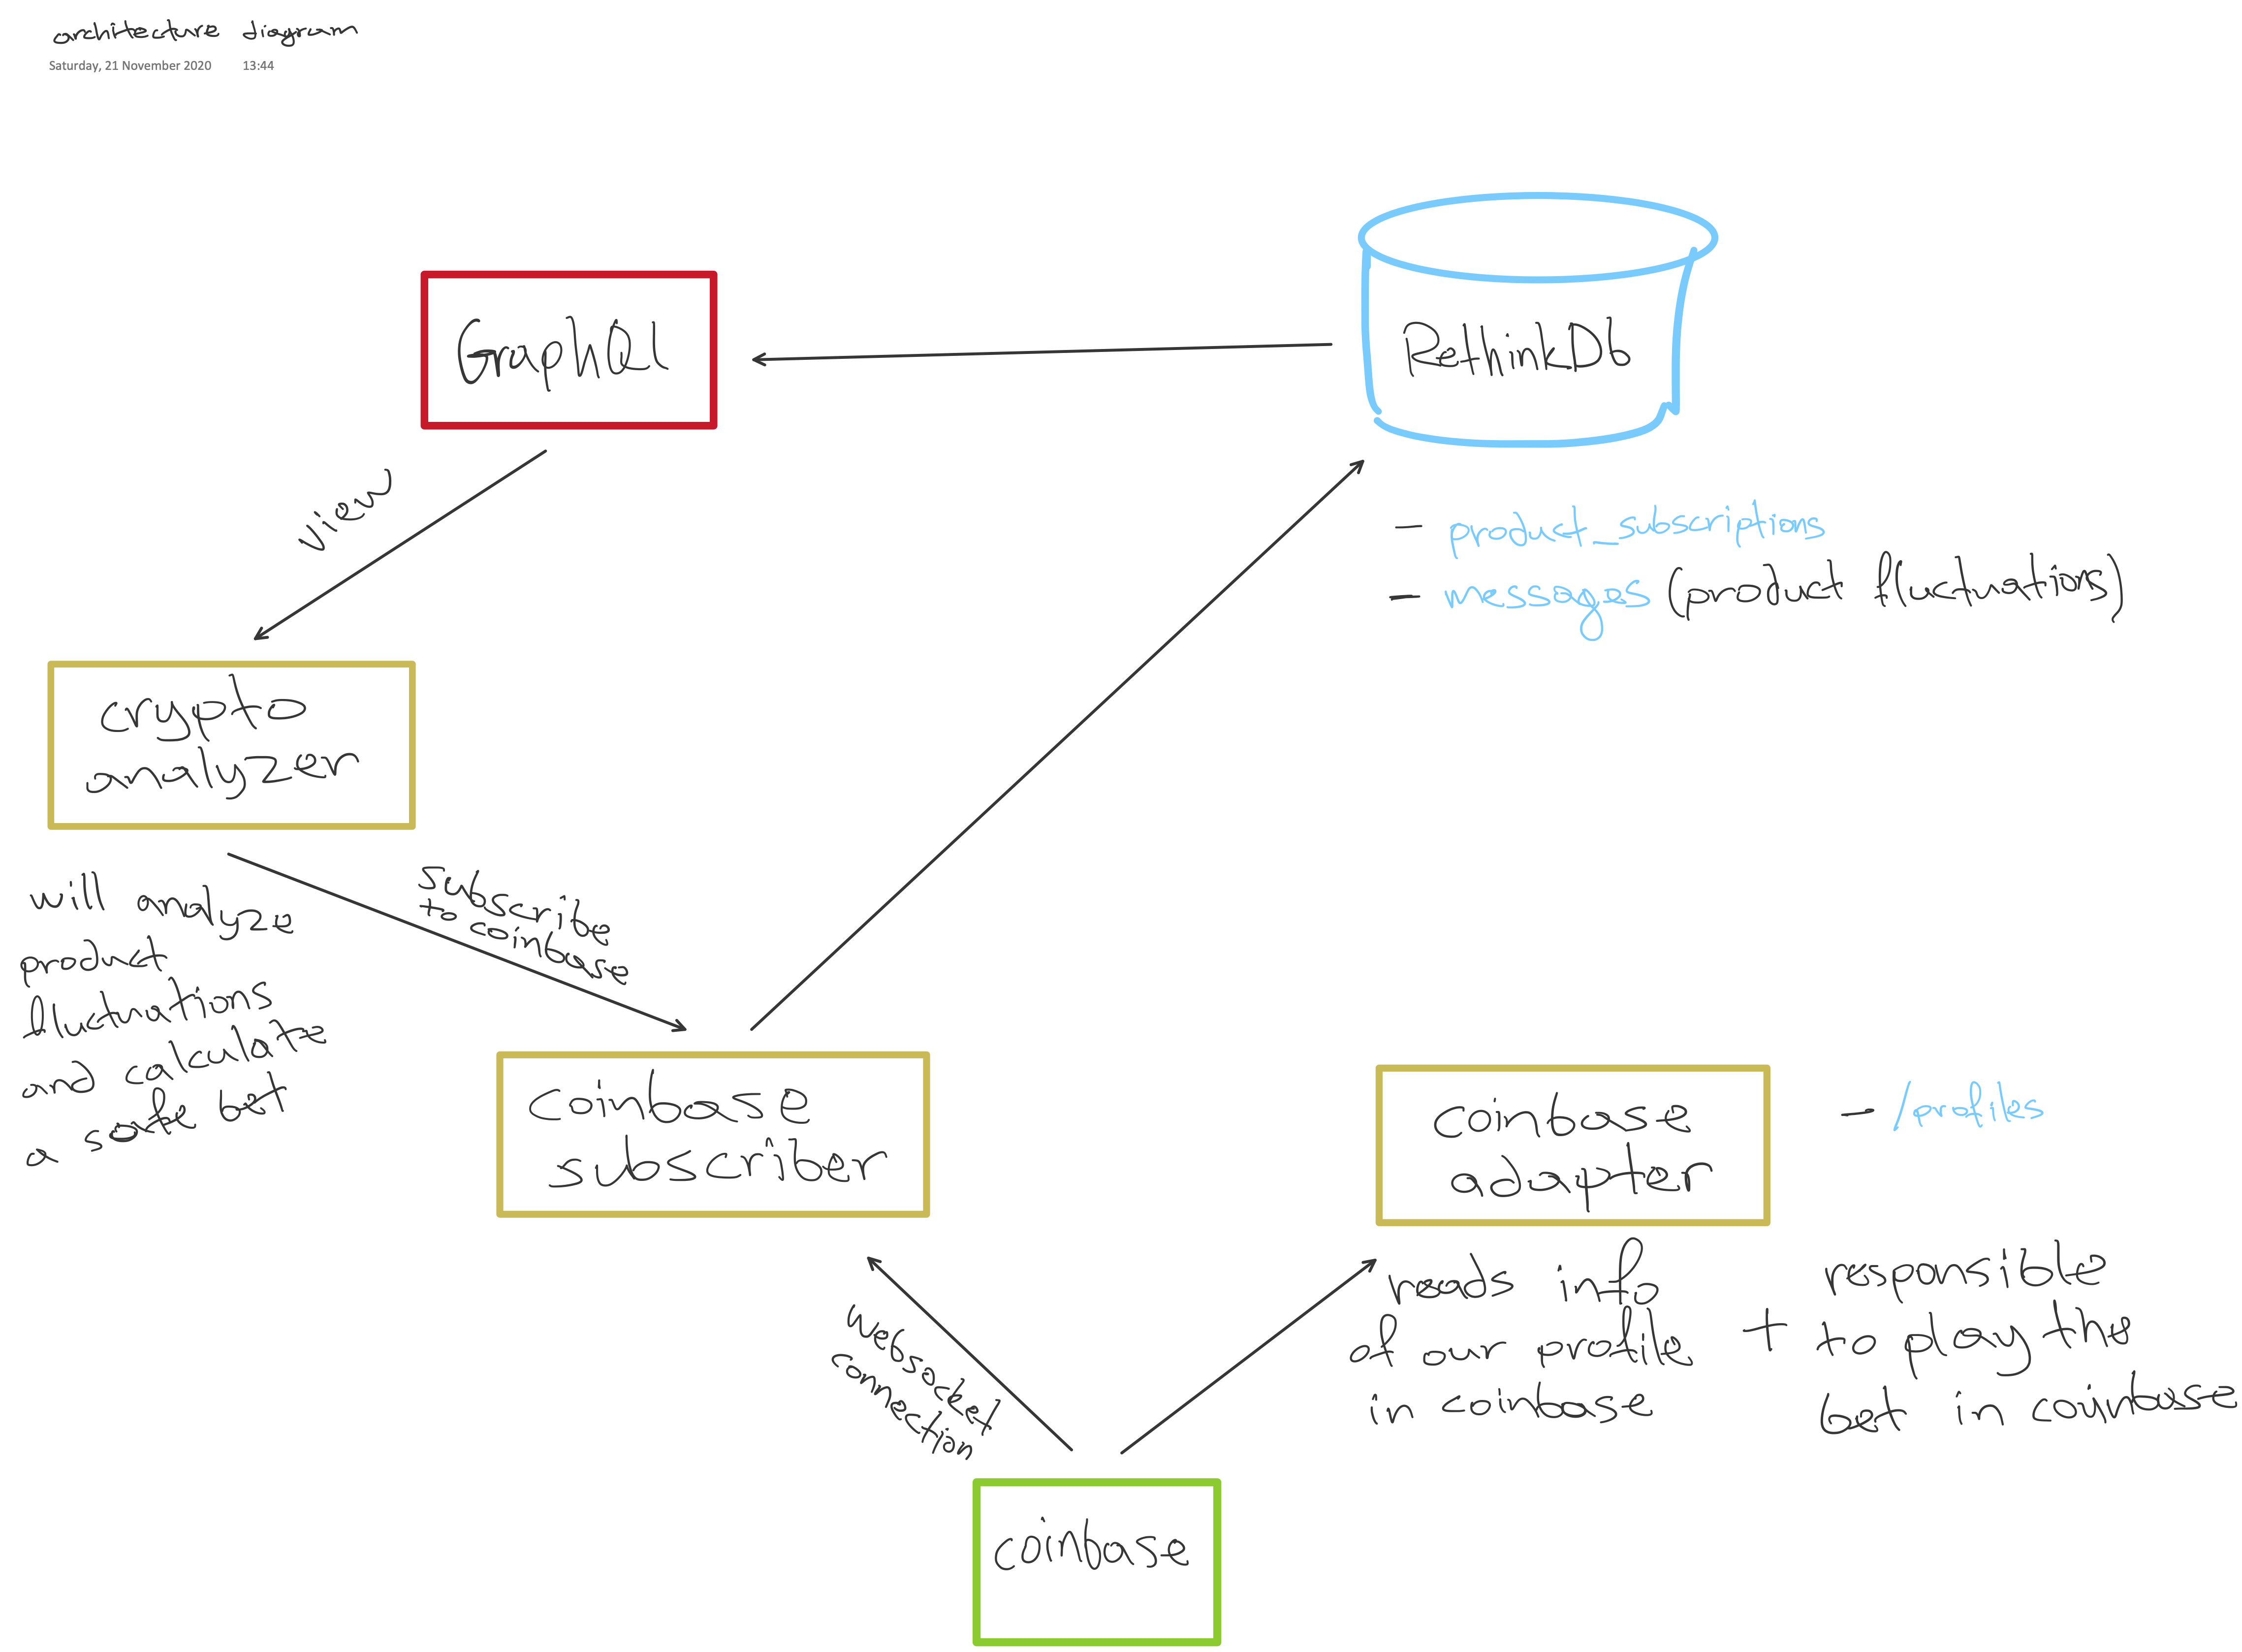 architecture diagram
Saturday, 21 November 2020 13:44
GraphQl
RethinkDb
View
- product_subscriptions
- messages (product fluctuations)
crypto
analyzer
will analyze
product
fluctuations
and calculate
a safe bet
subscribe
to coinbase
coinbase
subscriber
coinbase
adapter
- /profiles
reads info
of our profile
in coinbase
+
responsible
to play the
bet in coinbase
websocket
connection
coinbase